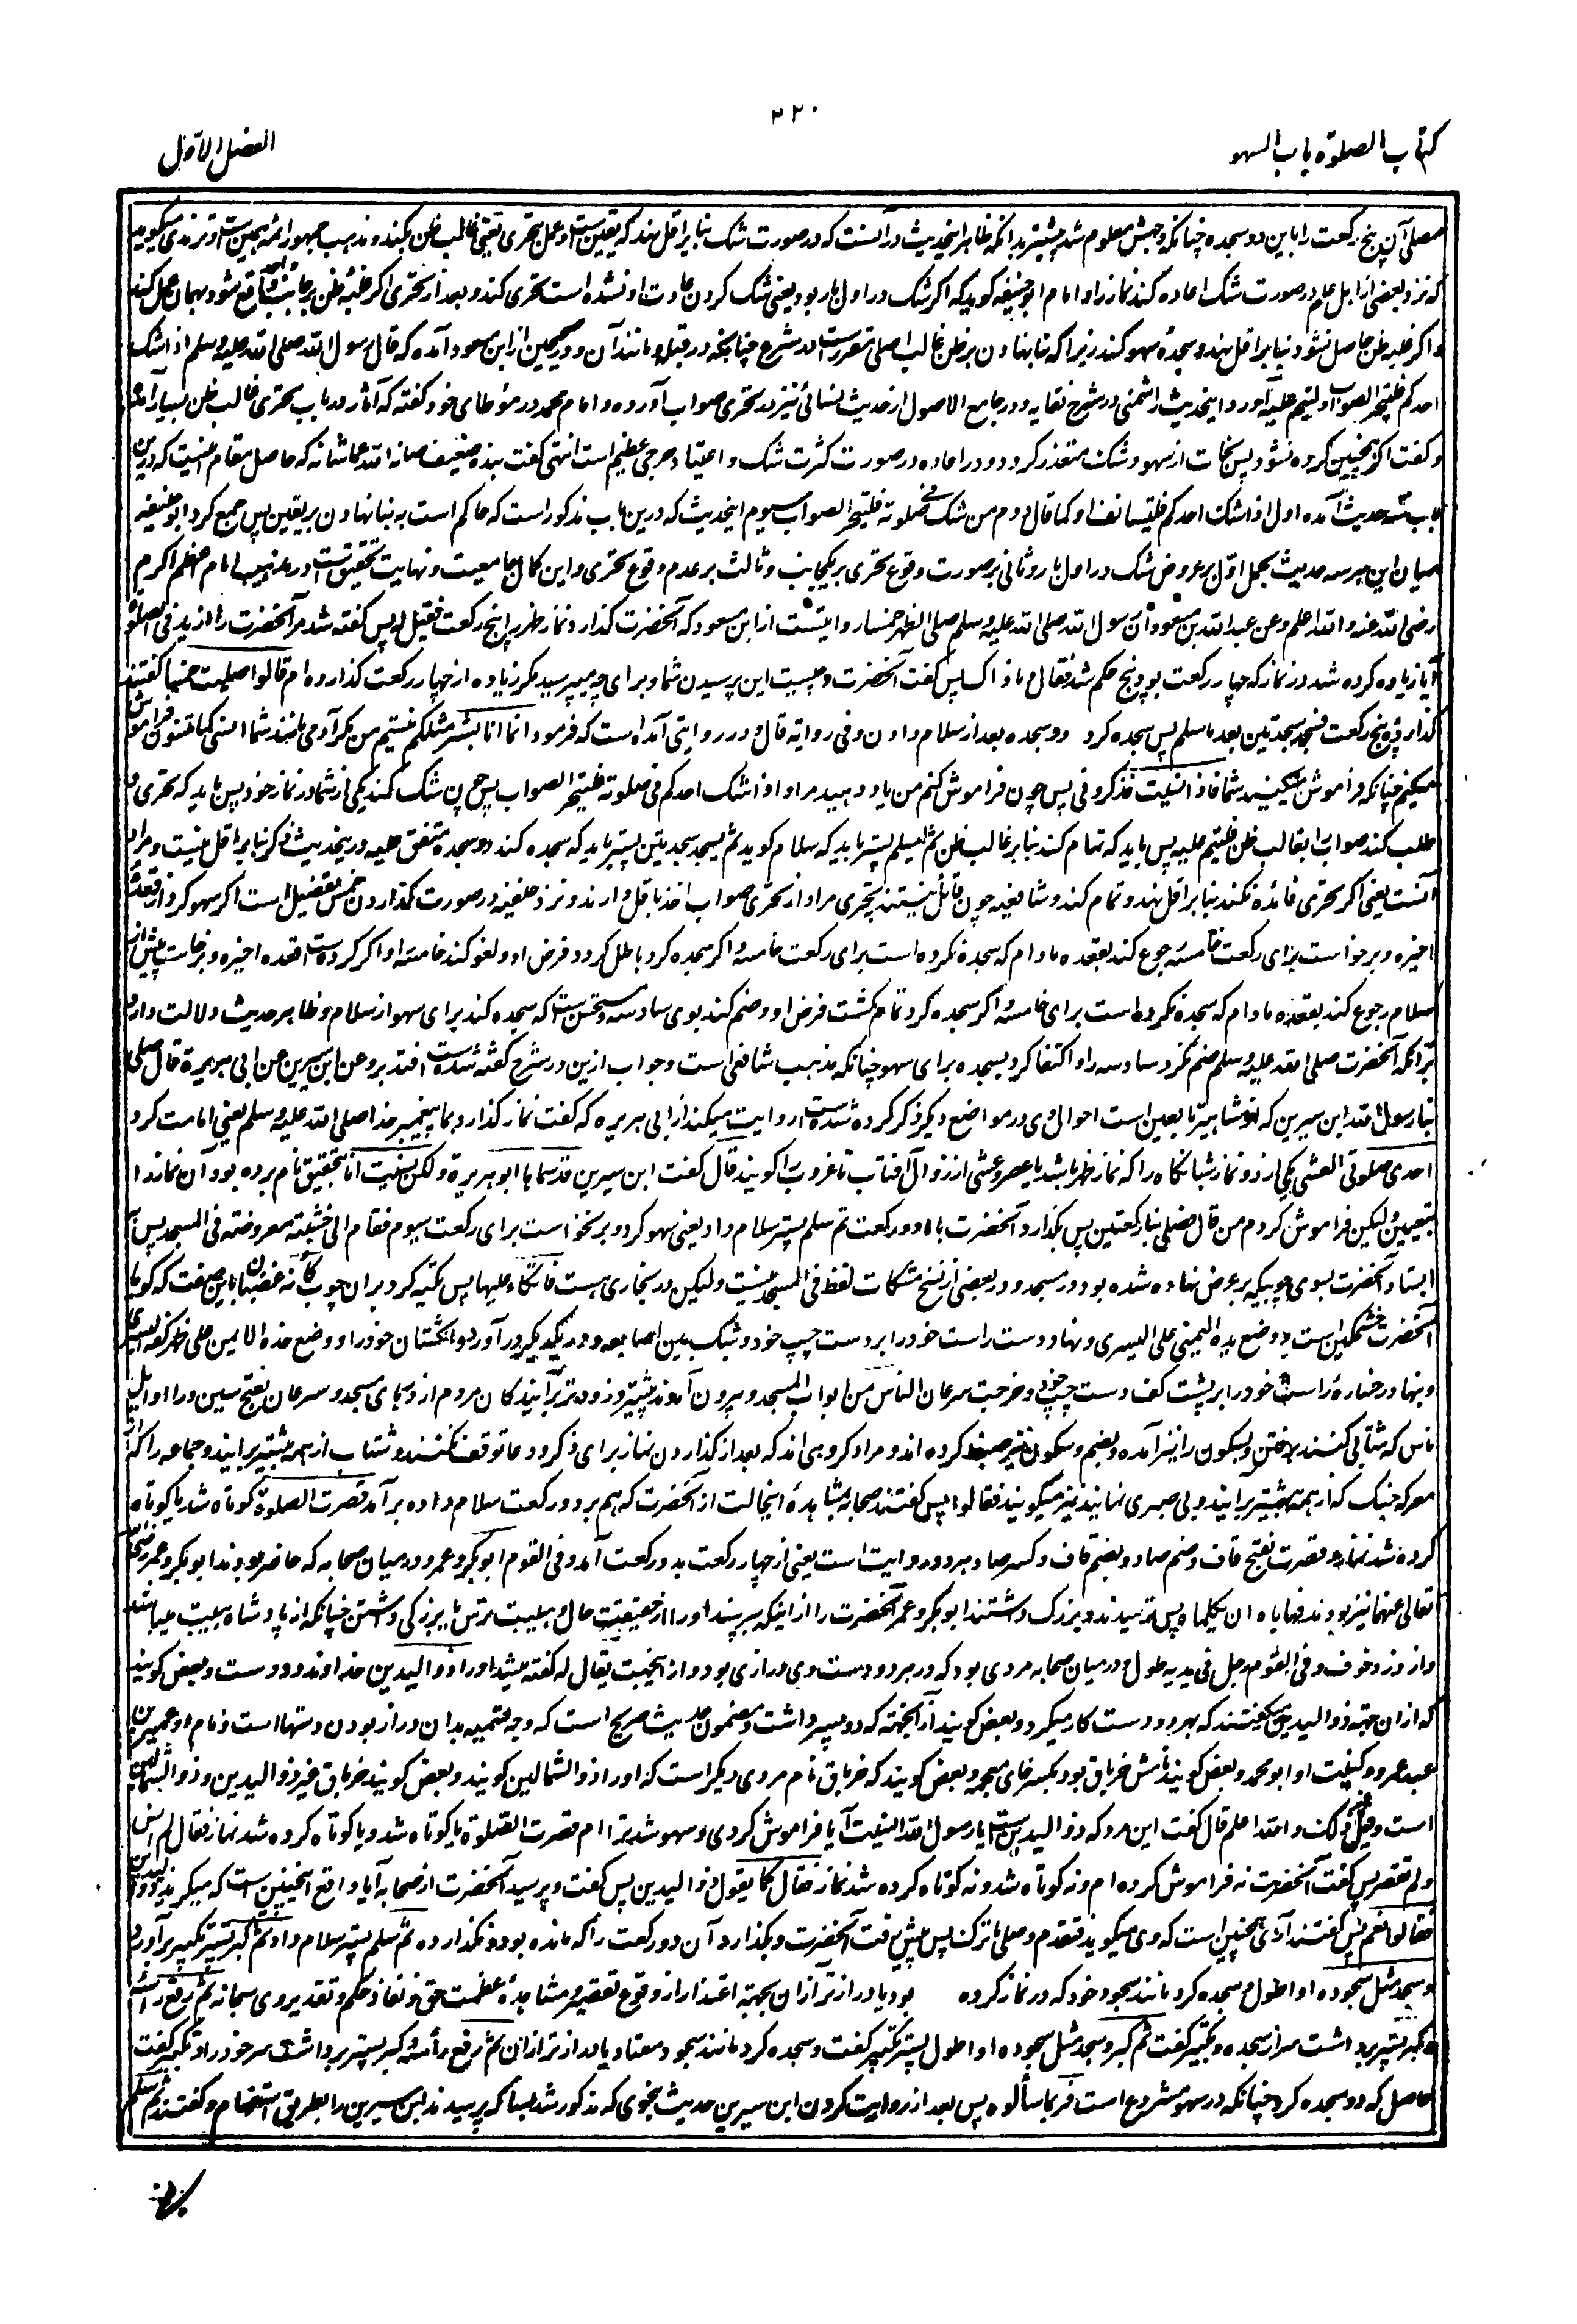 ۲۲۰
کتاب الصلوة باب السهو
الفصل الاول
مصلی آن پنج رکعت را باین دو سجده چنانکه وجهش معلوم شد پیشتر بدانکه ظاهر اینحدیث در آنست که در صورت شک بنا بر اقل نهد که یقین ست و عمل بتحری یعنی غالب ظن نکند و مذهب جمهور ائمه همین ست و ترمذی میگوید
که نزد بعضی از اهل علم در صورت شک اعاده کند نماز را و امام ابو حنیفه گوید که اگر شک در اول بار بود یعنی شک کردن عادت او نشده است تحری کند و بعد از تحری اگر غلبه ظن بر جانب واحد واقع شود بهمان عمل کند
و اگر غلبه ظن حاصل نشود بنا بر اقل نهد و سجده سهو کند زیرا که بنا نهادن بر ظن غالب اصلی مقرر ست در شرع چنانچه در قبله و مانند آن و در صحیحین از ابن مسعود آمده که قال رسول الله صلی الله علیه وسلم اذا شک
احدکم فلیتحر الصواب و لیتم علیه آورد و اینحدیث را شمنی در شرح نقایه و در جامع الاصول از حدیث نسائی نیز در تحری صواب آورده و امام محمد در موطای خود گفته که آثار در باب تحری غالب ظن بسیار آمده
و گفت اگر همچنین کرده نشود پس نجات از سهو و شک متعذر گردد و در اعاده در صورت کثرت شک و اعتیاد حرجی عظیم است انتهی گفت بنده ضعیف صانه الله عما شانه که حاصل مقام اینست که درین
باب سه حدیث آمده اول اذا شک احدکم فلیستانف او کما قال دوم من شک فی صلوته فلیتحر الصواب سیوم اینحدیث که درین باب مذکور است که حاکم است به بنا نهادن بر یقین پس جمع کرد ابو حنیفه
میان این هر سه حدیث بحمل اول بر عروض شک در اول بار و ثانی بر صورت وقوع تحری بر یکجانب و ثالث بر عدم وقوع تحری و این کمال جامعیت و نهایت تحقیق ست در مذهب امام اعظم اکرم
رضی الله عنه والله اعلم وعن عبد الله بن مسعود ان رسول الله صلی الله علیه وسلم صلی الظهر خمسا روایتست از ابن مسعود که آنحضرت گذارد نماز ظهر را پنج رکعت فقیل له پس گفته شد مر آنحضرت را ازید فی الصلوة
آیا زیاده کرده شد در نماز که چهار رکعت بود پنج حکم شد فقال و ما ذاک پس گفت آنحضرت و چیست این پرسیدن شما و برای چه میپرسید مگر زیاده از چهار رکعت گذارده ام قالوا صلیت خمسا گفتند
گذاردی پنج رکعت فسجد سجدتین بعد ما سلم پس سجده کرد دو سجده بعد از سلام دادن و فی روایة قال و در روایتی آمده است که فرمود انما انا بشر مثلکم نیستم من مگر آدمی مانند شما انسی کما تنسون فراموش
میکنم چنانکه فراموش میکنید شما فاذا نسیت فذکرونی پس چون فراموش کنم من یاد دهید مرا و اذا شک احدکم فی صلوته فلیتحر الصواب پس چون شک کند یکی از شما در نماز خود پس باید که تحری و
طلب کند صواب را بغالب ظن فلیتم علیه پس باید که تمام کند بنا بر غالب ظن ثم لیسلم پستر باید که سلام گوید ثم یسجد سجدتین پستر باید که سجده کند دو سجده متفق علیه و درینحدیث ذکر بنا بر اقل نیست و مراد
آنست یعنی اگر تحری فائده نکند بنا بر اقل نهد و تمام کند و شافعیه چون قائل نیستند بتحری مراد از تحری صواب اخذ باقل دارند و نزد حنفیه در صورت گذاردن خمس تفصیل است اگر سهو کرد از قعده
اخیره و برخواست برای رکعت خامسه رجوع کند بقعده مادام که سجده نکرده است برای رکعت خامسه و اگر سجده کرد باطل گردد فرض او و لغو کند خامسه او اگر کرده است قعده اخیره و برخاست پیش از
سلام رجوع کند بقعده مادام که سجده نکرده است برای خامسه و اگر سجده کرد تمام گشت فرض او و ضم کند بوی سادسه و مستحسن ست که سجده کند برای سهو از سلام و ظاهر حدیث دلالت دارد
برآنکه آنحضرت صلی الله علیه وسلم ضم نکرد سادسه را و اکتفا کرد بسجده برای سهو چنانکه مذهب شافعی است و جواب ازین در شرح گفته شده است فتدبر وعن ابن سیرین عن ابی هریرة قال صلی
بنا رسول الله ابن سیرین که از مشاهیر تابعین است احوال وی در مواضع دیگر ذکر کرده شده است روایت میکند از ابی هریره که گفت نماز گذارد بما پیغمبر خدا صلی الله علیه وسلم یعنی امامت کرد
احدی صلوتی العشی یکی از دو نماز شبانگاه را که نماز ظهر باشد یا عصر و عشی از زوال آفتاب تا غروب را گویند قال گفت ابن سیرین قد سماها ابو هریرة ولکن نسیت انا بتحقیق نام برده بود آن نماز را
بتعیین ولیکن فراموش کردم من قال فصلی بنا رکعتین پس بگذارد آنحضرت با ما دو رکعت ثم سلم پستر سلام داد یعنی سهو کرد و برنخواست برای رکعت سیوم فقام الی خشبة معروضة فی المسجد پس
ایستاد آنحضرت بسوی چوبیکه بر عرض نهاده شده بود در مسجد و در بعضی از نسخ مشکات لفظ فی المسجد نیست ولیکن در بخاری هست فاتکأ علیها پس تکیه کرد بران چوب کانه غضبان باین صفت که گویا
آنحضرت خشمگین است و وضع یده الیمنی علی الیسری و نهاد دست راست خود را بر دست چپ خود و شبک بین اصابعه و در یکدیگر در آورد انگشتان خود را و وضع خده الایمن علی ظهر کفه الیسری
و بنهاد رخساره راست خود را بر پشت کف دست چپ خود و خرجت سرعان الناس من ابواب المسجد و بیرون آمدند پیشتر و زودتر برآیندگان مردم از درهای مسجد و سرعان بفتح سین و را اوائل
ناس که شتابی کنند در رفتن و بسکون را نیز آمده و بضم و سکون نیز ضبط کرده اند و مراد گروهی اند که بعد از گذاردن نماز برای ذکر و دعا توقف نکنند و شتاب از همه پیشتر برایند و جماعه را که از
معرکه جنگ که از همه پیشتر برایند و بی صبری نمایند نیز میگویند فقالوا پس گفتند صحابه بمشاهده اینحالت از آنحضرت که هم بر دو رکعت سلام داده برآمد قصرت الصلوة کوتاه شد یا کوتاه
کرده شد نماز و قصرت بفتح قاف و ضم صاد و بضم قاف و کسر صاد بهر دو روایت است یعنی از چهار رکعت بدو رکعت آمد و فی القوم ابو بکر و عمر و در میان صحابه که حاضر بودند ابو بکر و عمر رضی الله
تعالی عنهما نیز بودند فهاباه ان یکلماه پس ترسیدند و بزرگ داشتند ابو بکر و عمر آنحضرت را از اینکه بپرسند او را از حقیقت حال و هیبت ترس یا بزرگی داشتن چنانکه از پادشاه هیبت میباشد
و از دزد خوف و فی القوم رجل فی یدیه طول و در میان صحابه مردی بود که در هر دو دست وی درازی بود و از اینجهت یقال له گفته میشد او را ذو الیدین خداوند دو دست و بعض گویند
که از ان جهت ذو الیدین میگفتند که بهر دو دست کار میکرد و بعض گویند از آنجهت که دو سپر داشت و مضمون حدیث صریح است که وجه تسمیه بدان دراز بودن دستها است و نام او عمیر بن
عبد عمرو و کنیت او ابو محمد و بعض گویند نامش خرباق بود بکسر خای معجمه و بعض گویند که خرباق نام مردی دیگر است که او را ذو الشمالین گویند و بعض گویند خرباق غیر ذو الیدین و ذو الشمالین
است و قیل غیر ذلک والله اعلم قال گفت این مرد که ذو الیدین ست یا رسول الله انسیت آیا فراموش کردی و سهو شد ترا ام قصرت الصلوة یا کوتاه شد و یا کوتاه کرده شد نماز فقال لم انس
ولم تقصر پس گفت آنحضرت نه فراموش کرده ام و نه کوتاه شد و نه کوتاه کرده شد نماز فقال اکما یقول ذو الیدین پس گفت و پرسید آنحضرت از صحابه آیا واقع اینچنین است که میگوید ذو الیدین
فقالوا نعم پس گفتند آری همچنین است که وی میگوید فتقدم وصلی ما ترک پس پیش رفت آنحضرت و بگذارد آن دو رکعت را که مانده بود و نگذارده ثم سلم پستر سلام داد ثم کبر پستر تکبیر برآورد
و سجد مثل سجوده او اطول و سجده کرد مانند سجود خود که در نماز کرده بود یا درازتر ازان بجهت اعتذار از وقوع تقصیر و مشاهده عظمت حق و نفاذ حکم و تقدیر وی سبحانه ثم رفع رأسه
و کبر پستر برداشت سر از سجده و تکبیر گفت ثم کبر و سجد مثل سجوده او اطول پستر تکبیر گفت و سجده کرد مانند سجود معتاد یا درازتر ازان ثم رفع رأسه و کبر پستر برداشت سر خود را و تکبیر گفت
حاصل که دو سجده کرد چنانکه در سهو مشروع است فربما سألوه پس بعد از روایت کردن ابن سیرین حدیث بنحوی که مذکور شد بسا که پرسیدند ابن سیرین را بطریق استفهام و گفتند ثم سلم